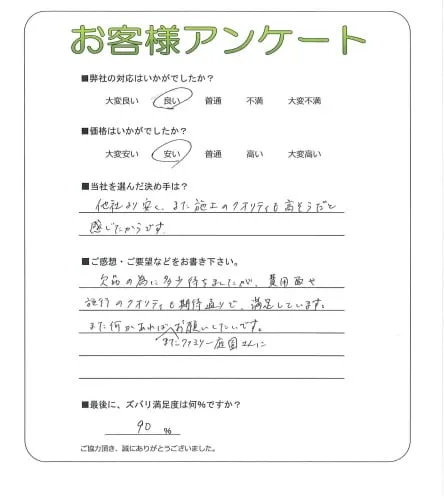 お客様アンケート
■弊社の対応はいかがでしたか？
大変良い 良い 普通 不満 大変不満
■価格はいかがでしたか？
大変安い 安い 普通 高い 大変高い
■当社を選んだ決め手は？
他社より安く、また施工のクオリティも高そうだと
感じたからです。
■ご感想・ご要望などをお書き下さい。
欠品の為に多少待ちましたが、費用面や
施行のクオリティも期待通りで、満足しています。
また何かあればお願いしたいです。
またファミリー庭園さんに
■最後に、ズバリ満足度は何％ですか？
90 ％
ご協力頂き、誠にありがとうございました。